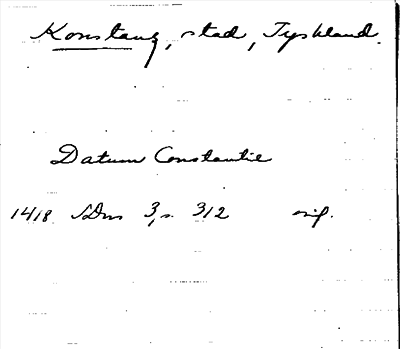 Konstanz, stad, Tyskland.
Datum Constantie
1418 SDns 3, s. 312 orig.